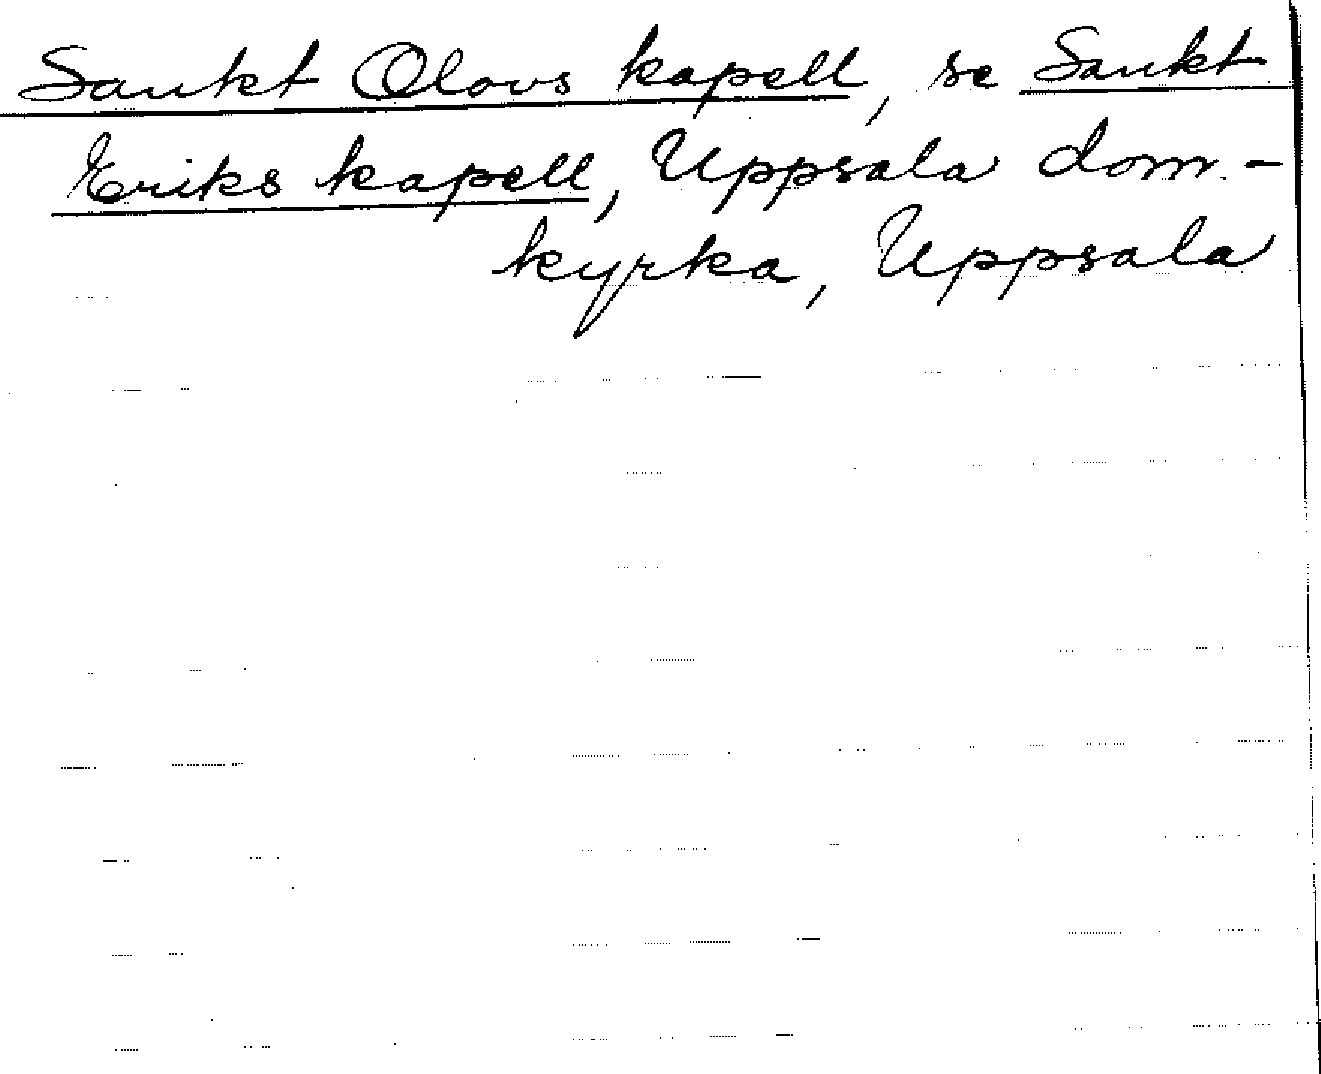 Sankt Olovs kapell, se Sankt
Eriks kapell, Uppsala dom-
kyrka, Uppsala